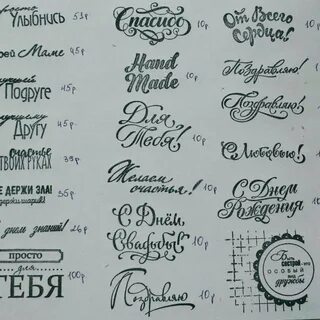 просто
Улыбнись 51р
моей Маме 45р
лучшей
Подруге 45р
лучшему
Другу 45р
счастье
в твоих руках 39р
НЕ ДЕРЖИ ЗЛА!
держи шарик! 35р
с днем знаний! 26р
просто
для
ТЕБЯ 100р
Спасибо 10р
Hand
Made 10р
Для
Тебя! 10р
Желаем
счастья! 10р
С Днём
Свадьбы! 10р
Поздравляю 10р
От Всего
Сердца! 10р
Поздравляю! 10р
Поздравляю! 10р
С Любовью! 10р
С Днем
Рождения 10р
Быть
сестрой - это
ОСОБЫЙ
вид
дружбы